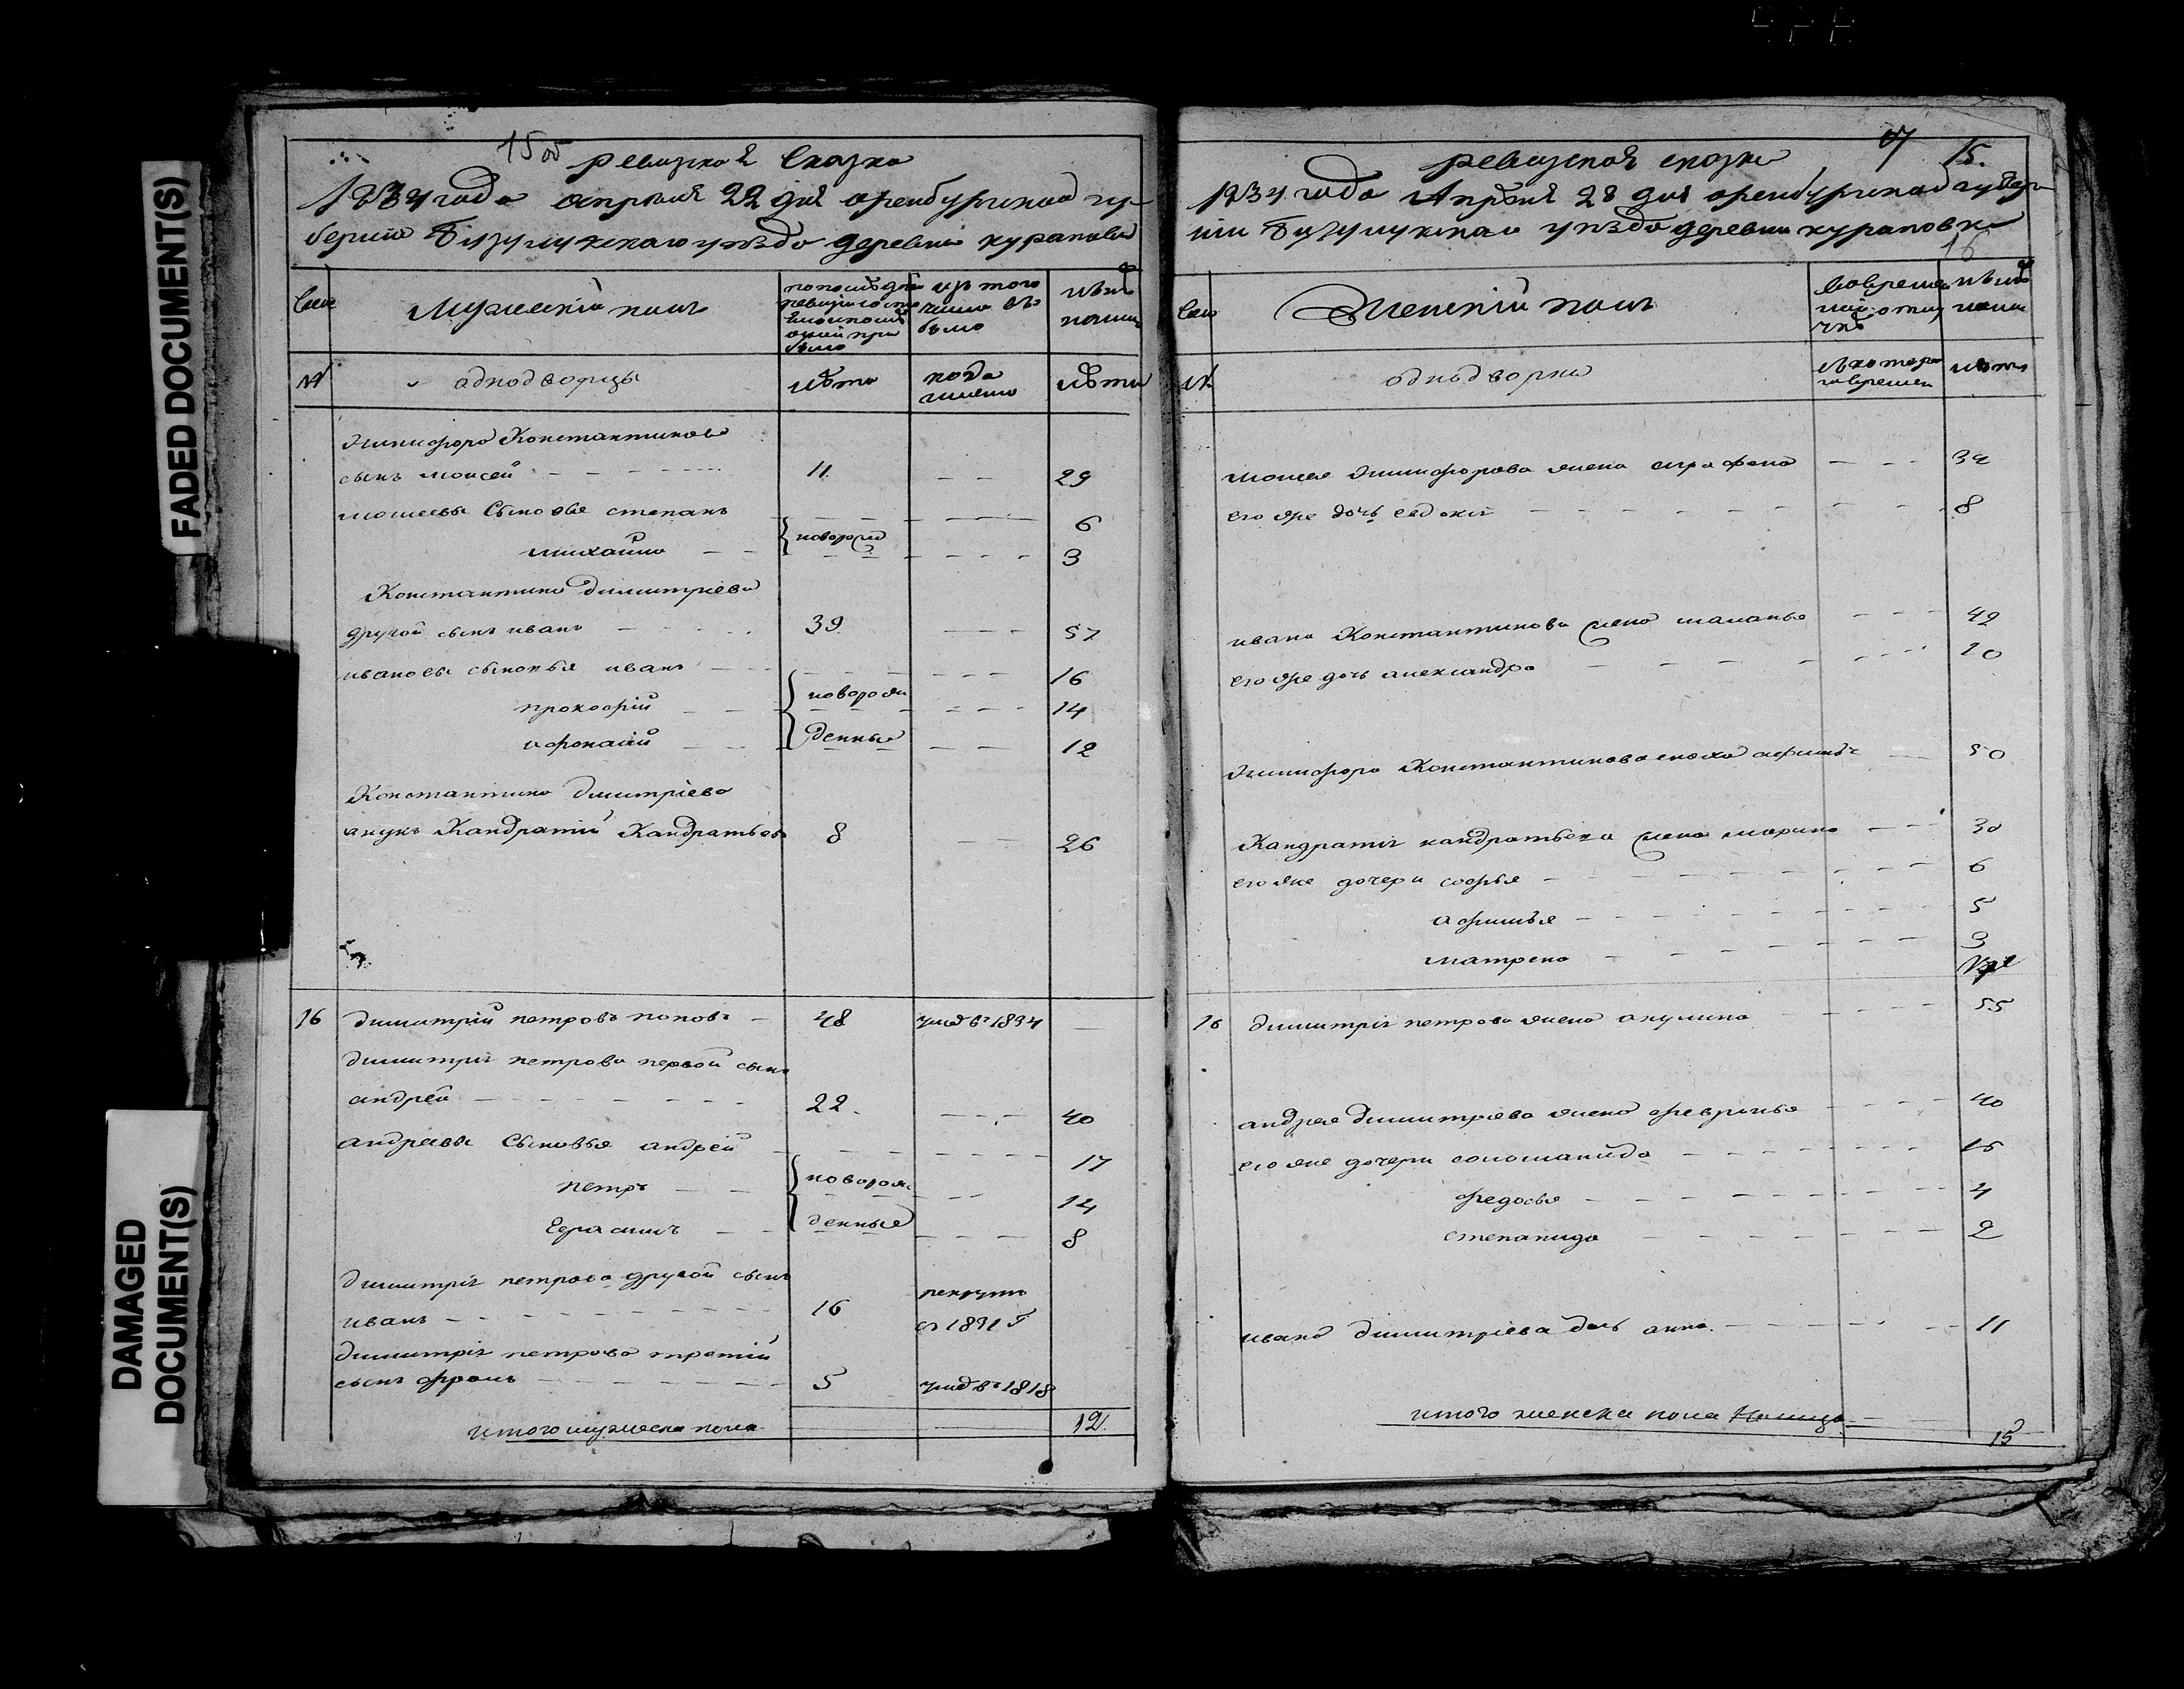 FADED DOCUMENT(S)
DAMAGED
DOCUMENT(S)
15 об
ревизская Сказка
1834 года апреля 22 дня оренбургской гу
берніи Бузулукскаго уѣзда деревни кураповки
Семьи
Мужескій полъ
по послѣдней ревизіи состояло и послѣ оной прибыло
изъ того числа выбыло
нынѣ на лицо
№
однодворцы
лѣта
когда именно
лѣта
Никифора Константинова
сынъ моисей 11. 29
моисеевы Сыновья степанъ 6
новорожд
михайло 3
Константина Димитріева
другой сынъ иванъ 39 57
ивановы сыновья иванъ 16
новорож
прокофій 14
денные
афонасій 12
Константина Дмитріева
внукъ Кандратій Кандратьевъ 8 26
16 димитрій петровъ поповъ 48 умер въ 1834
димитрія петрова первой сынъ
андрей 22. 40
андреевы Сыновья андрей 17
новорож
петръ 14
денные
Ерасимъ 8
димитрія петрова другой сынъ
рекрутъ
иванъ 16 съ 1831 г
димитрія петрова третій
сынъ фролъ 5 умер въ 1818
итого мужеска пола 12.
15.
ревизская сказка
1834 года Апреля 28 дня оренбургской губер
ніи Бузулукскаго уѣзда деревни кураповки
16
Семьи
Женскій полъ
во временной отлучкѣ
нынѣ на лицо
№
однодворки
съ котораго времени
лѣта
моисея Никифорова жена аграфена 32
его же дочь евдокия 8
ивана Константинова жена маланья 42
его же дочь александра 10
Никифора Константинова сноха афимья 50
Кандратія кандратьева жена марина 30
его же дочери софья 6
афимья 5
матрена 3
16 димитрія петрова жена акулина 55
андрея димитріева жена февронья 40
его же дочери соломанида 16
федосья 4
степанида 2
ивана димитріева дочь анна. 11
итого женска пола
15